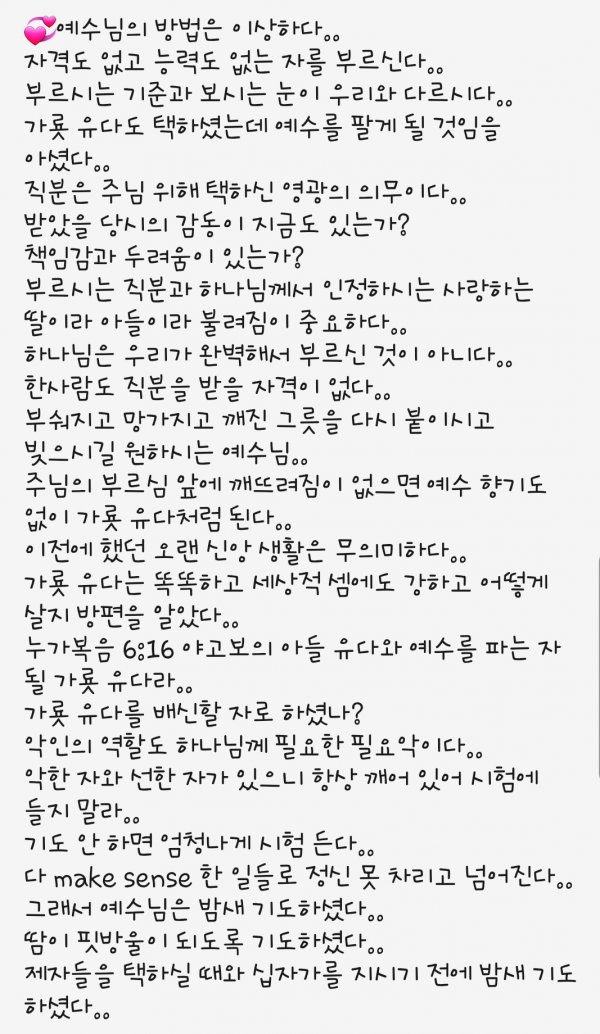 💞예수님의 방법은 이상하다..
자격도 없고 능력도 없는 자를 부르신다..
부르시는 기준과 보시는 눈이 우리와 다르시다..
가룟 유다도 택하셨는데 예수를 팔게 될 것임을
아셨다..
직분은 주님 위해 택하신 영광의 의무이다..
받았을 당시의 감동이 지금도 있는가?
책임감과 두려움이 있는가?
부르시는 직분과 하나님께서 인정하시는 사랑하는
딸이라 아들이라 불려짐이 중요하다..
하나님은 우리가 완벽해서 부르신 것이 아니다..
한사람도 직분을 받을 자격이 없다..
부숴지고 망가지고 깨진 그릇을 다시 붙이시고
빚으시길 원하시는 예수님..
주님의 부르심 앞에 깨뜨려짐이 없으면 예수 향기도
없이 가룟 유다처럼 된다..
이전에 했던 오랜 신앙 생활은 무의미하다..
가룟 유다는 똑똑하고 세상적 셈에도 강하고 어떻게
살지 방편을 알았다..
누가복음 6:16 야고보의 아들 유다와 예수를 파는 자
될 가룟 유다라..
가룟 유다를 배신할 자로 하셨나?
악인의 역할도 하나님께 필요한 필요악이다..
악한 자와 선한 자가 있으니 항상 깨어 있어 시험에
들지 말라..
기도 안 하면 엄청나게 시험 든다..
다 make sense 한 일들로 정신 못 차리고 넘어진다..
그래서 예수님은 밤새 기도하셨다..
땀이 핏방울이 되도록 기도하셨다..
제자들을 택하실 때와 십자가를 지시기 전에 밤새 기도
하셨다..